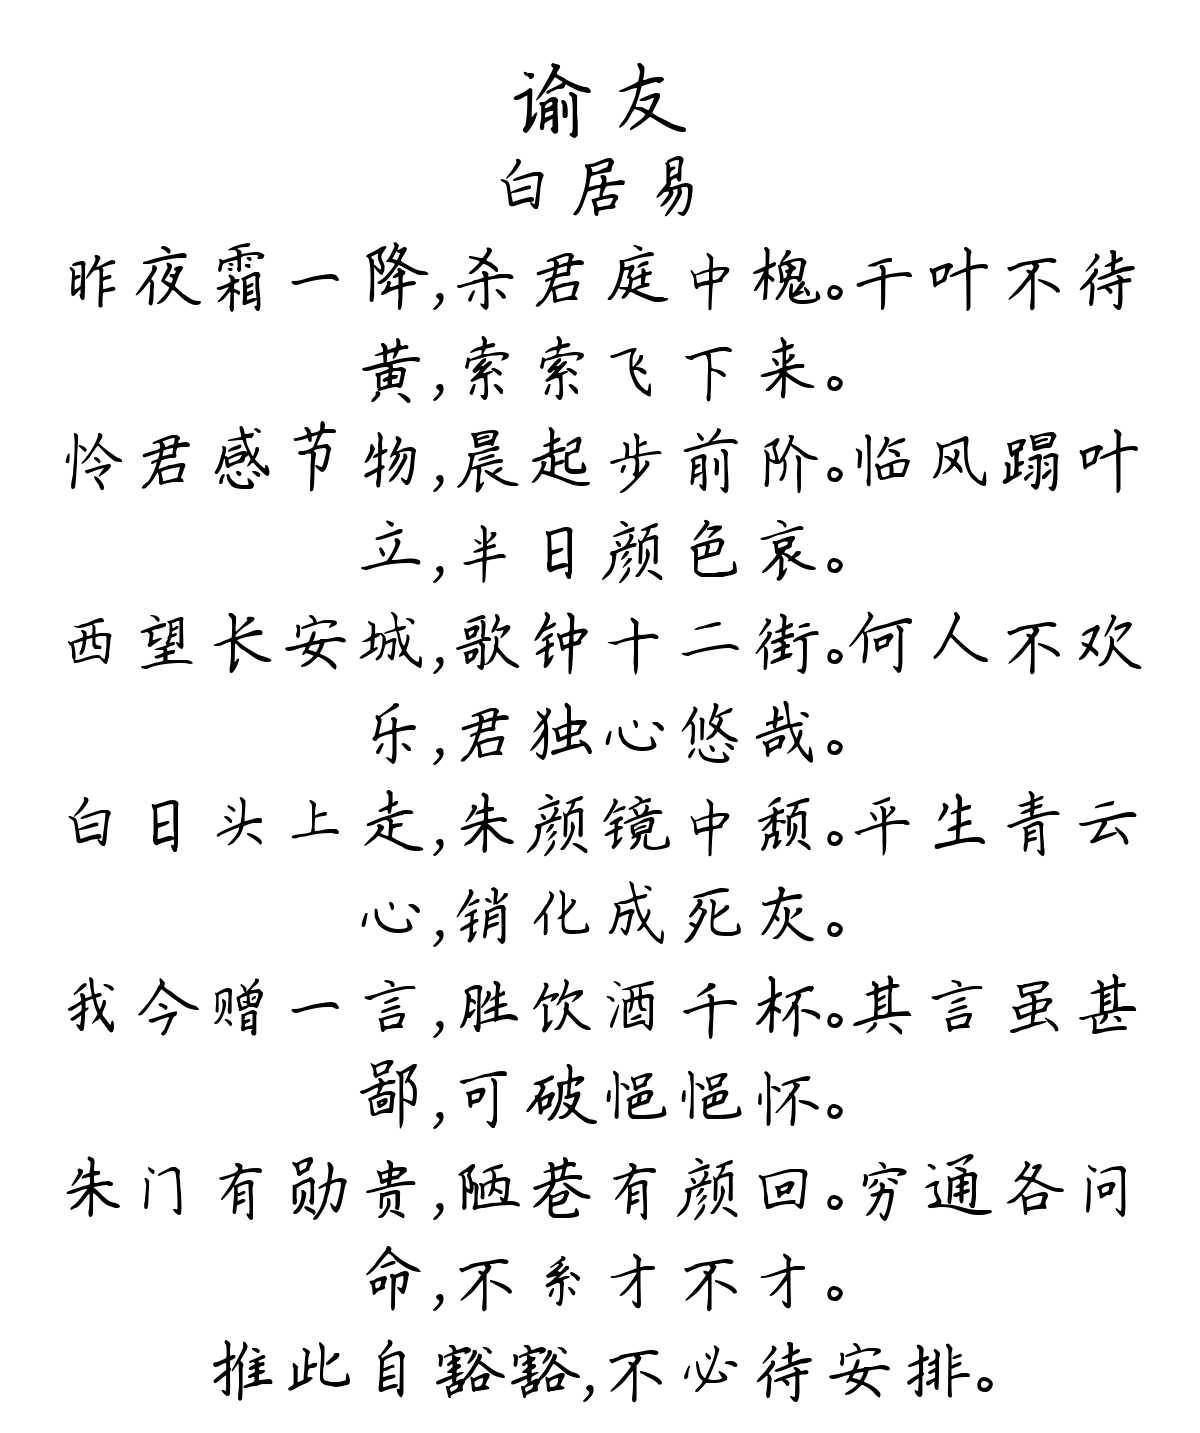 谕友
白居易
昨夜霜一降,杀君庭中槐。干叶不待
黄,索索飞下来。
怜君感节物,晨起步前阶。临风蹋叶
立,半日颜色哀。
西望长安城,歌钟十二街。何人不欢
乐,君独心悠哉。
白日头上走,朱颜镜中颓。平生青云
心,销化成死灰。
我今赠一言,胜饮酒千杯。其言虽甚
鄙,可破悒悒怀。
朱门有勋贵,陋巷有颜回。穷通各问
命,不系才不才。
推此自豁豁,不必待安排。